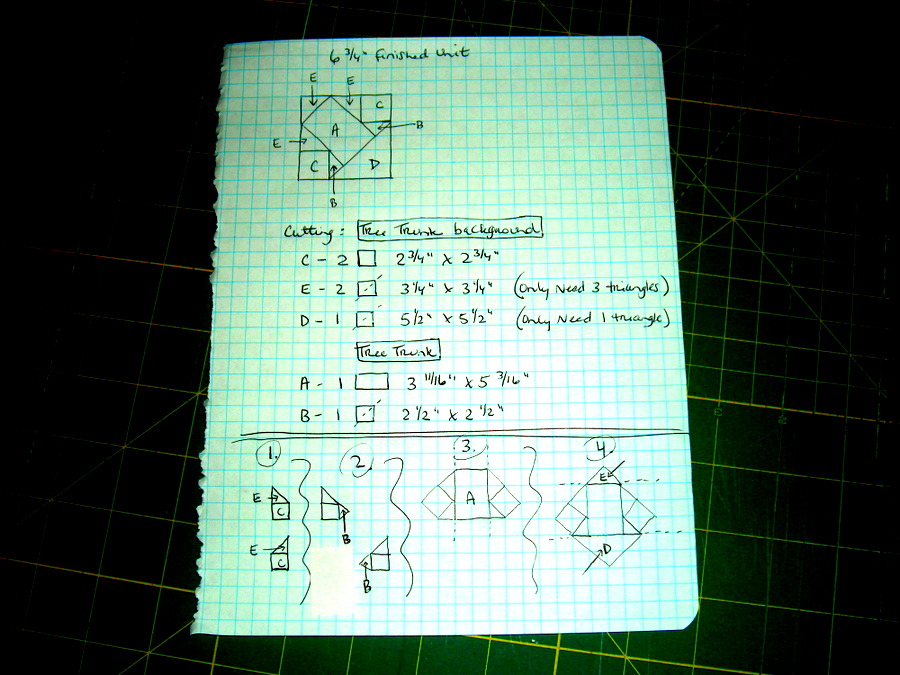 6 3/4" Finished Unit
E E
C
A
B
E
C D
B
Cutting: Tree Trunk background
C - 2 2 3/4" X 2 3/4"
E - 2 3 1/4" X 3 1/4" (Only Need 3 triangles)
D - 1 5 1/2" X 5 1/2" (Only Need 1 triangle)
Tree Trunk
A - 1 3 11/16" X 5 3/16"
B - 1 2 1/2" X 2 1/2"
1. 2. 3. 4.
E
E C A
B
E D
C
B